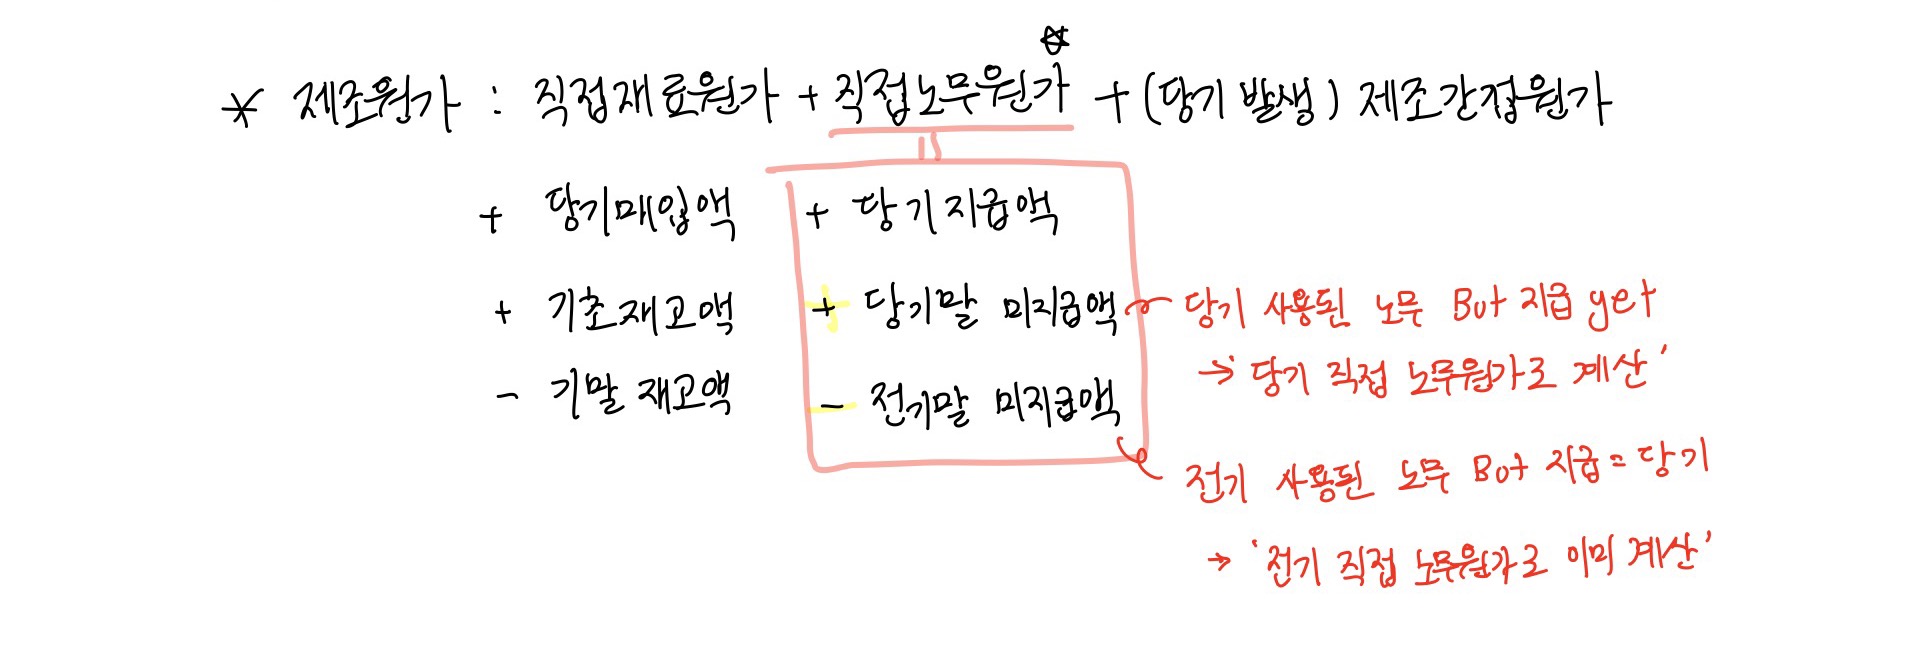 * 제조원가 : 직접재료원가 + 직접노무원가 + (당기 발생) 제조간접원가
+ 당기매입액 + 당기지급액
+ 기초재고액 + 당기말 미지급액 당기 사용된 노무 But 지급 yet
→ '당기 직접 노무원가로 계산'
- 기말 재고액 - 전기말 미지급액
전기 사용된 노무 But 지급 = 당기
→ '전기 직접 노무원가로 이미 계산'